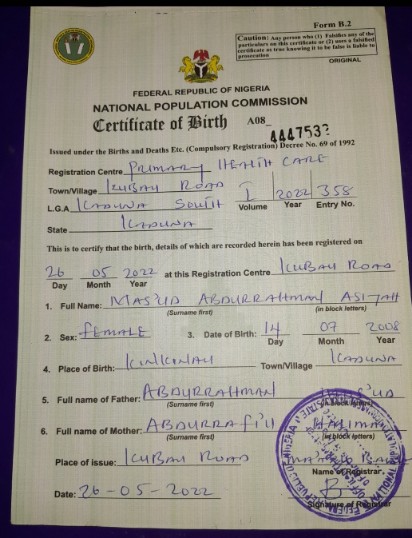 Form B.2
Caution: Any person who (1) Falsifies any of the
particulars on this certificate or (2) uses a falsified
certificate as true knowing it to be false is liable to
prosecution
ORIGINAL
FEDERAL REPUBLIC OF NIGERIA
NATIONAL POPULATION COMMISSION
Certificate of Birth A08
Issued under the Births and Deaths Etc. (Compulsory Registration) Decree No. 69 of 1992
Registration Centre PRIMARY HEALTH CARE
Town/Village KUBAU ROAD
L.G.A KADUNA SOUTH I 2022 358
Volume Year Entry No.
State KADUNA
This is to certify that the birth, details of which are recorded herein has been registered on
26 05 2022 at this Registration Centre KUBAU ROAD
Day Month Year
1. Full Name: MAS'UD ABDURRAHMAN
(Surname first) (in block letters)
2. Sex: FEMALE 3. Date of Birth: 14 07 2008
Day Month Year
4. Place of Birth: KINKINAU Town/Village KADUNA
5. Full name of Father: ABDURRAHMAN
(Surname first)
6. Full name of Mother: ABDURRAFI'U
(Surname first) (in block letters)
Place of issue: KUBAU ROAD
Name of Registrar.
Date: 26-05-2022
Signature of Registrar